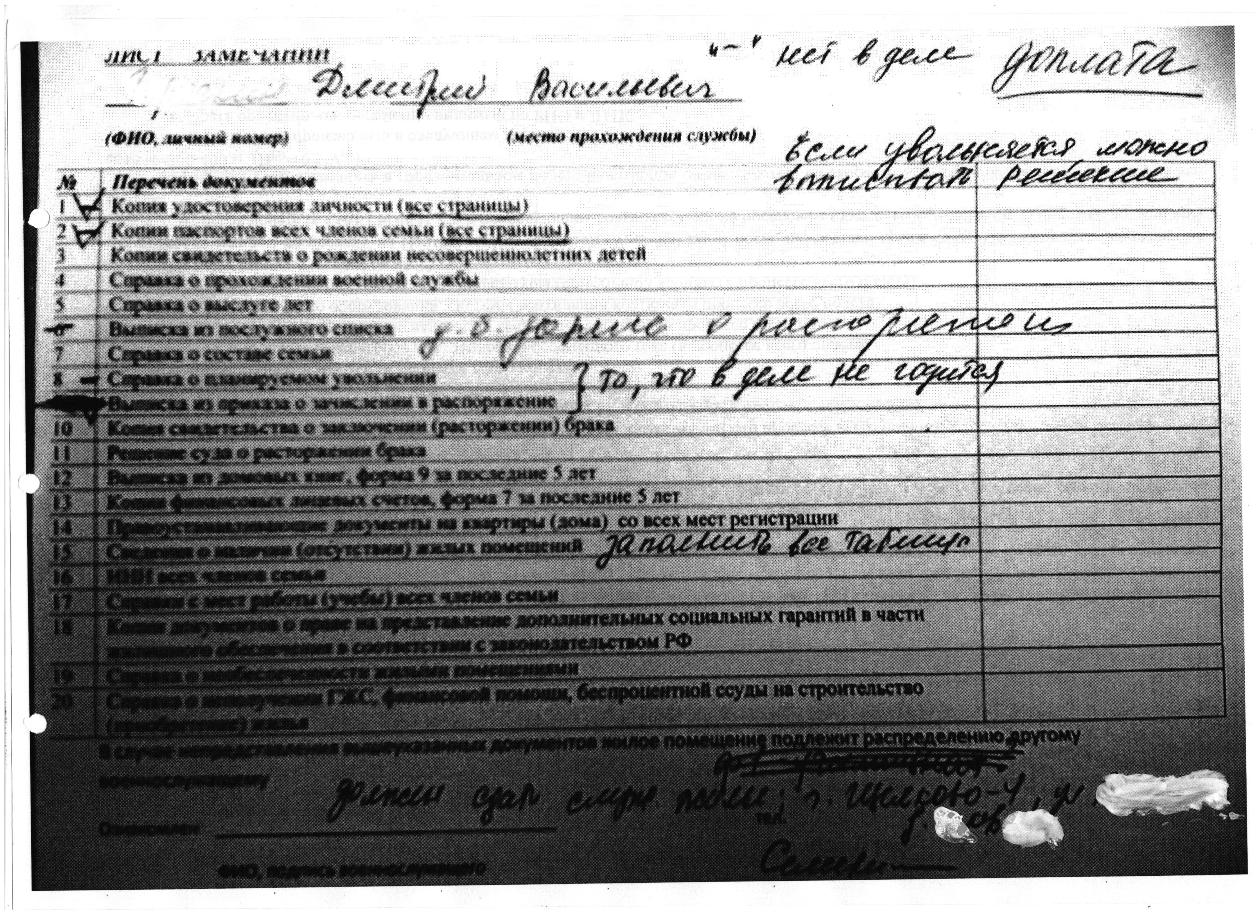 ЛИСТ ЗАМЕЧАНИЙ
"–" нет в деле доплата
Дмитрий Васильевич
(ФИО, личный номер) (место прохождения службы)
Если увольняется можно
выписывать решение
№ Перечень документов
1 Копия удостоверения личности (все страницы)
2 Копии паспортов всех членов семьи (все страницы)
3 Копии свидетельств о рождении несовершеннолетних детей
4 Справка о прохождении военной службы
5 Справка о выслуге лет
6 Выписка из послужного списка д.б. запись о
7 Справка о составе семьи
8 Справка о планируемом увольнении } то, что в деле не годится
Выписка из приказа о зачислении в распоряжение
10 Копия свидетельства о заключении (расторжении) брака
11 Решение суда о расторжении брака
12 Выписка из домовых книг, форма 9 за последние 5 лет
13 Копии финансовых лицевых счетов, форма 7 за последние 5 лет
14 Правоустанавливающие документы на квартиры (дома) со всех мест регистрации
15 Сведения о наличии (отсутствии) жилых помещений заполнить все таблицы
16 ИНН всех членов семьи
17 Справки с мест работы (учебы) всех членов семьи
18 Копии документов о праве на представление дополнительных социальных гарантий в части
жилищного обеспечения в соответствии с законодательством РФ
19 Справка о необеспеченности жилыми помещениями
20 Справка о неполучении ГЖС, финансовой помощи, беспроцентной ссуды на строительство
(приобретение) жилья
В случае непредставления вышеуказанных документов жилое помещение подлежит распределению другому
военнослужащему
должен сдать г. Щелково-4, ул.
Ознакомлен тел.
ФИО, подпись военнослужащего